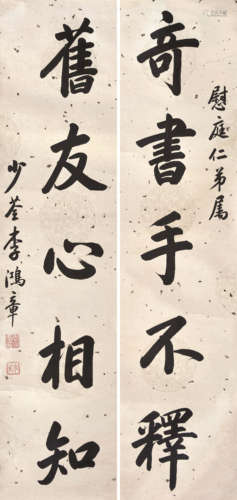 慰庭仁弟属
奇書手不釋
舊友心相知
少荃李鴻章